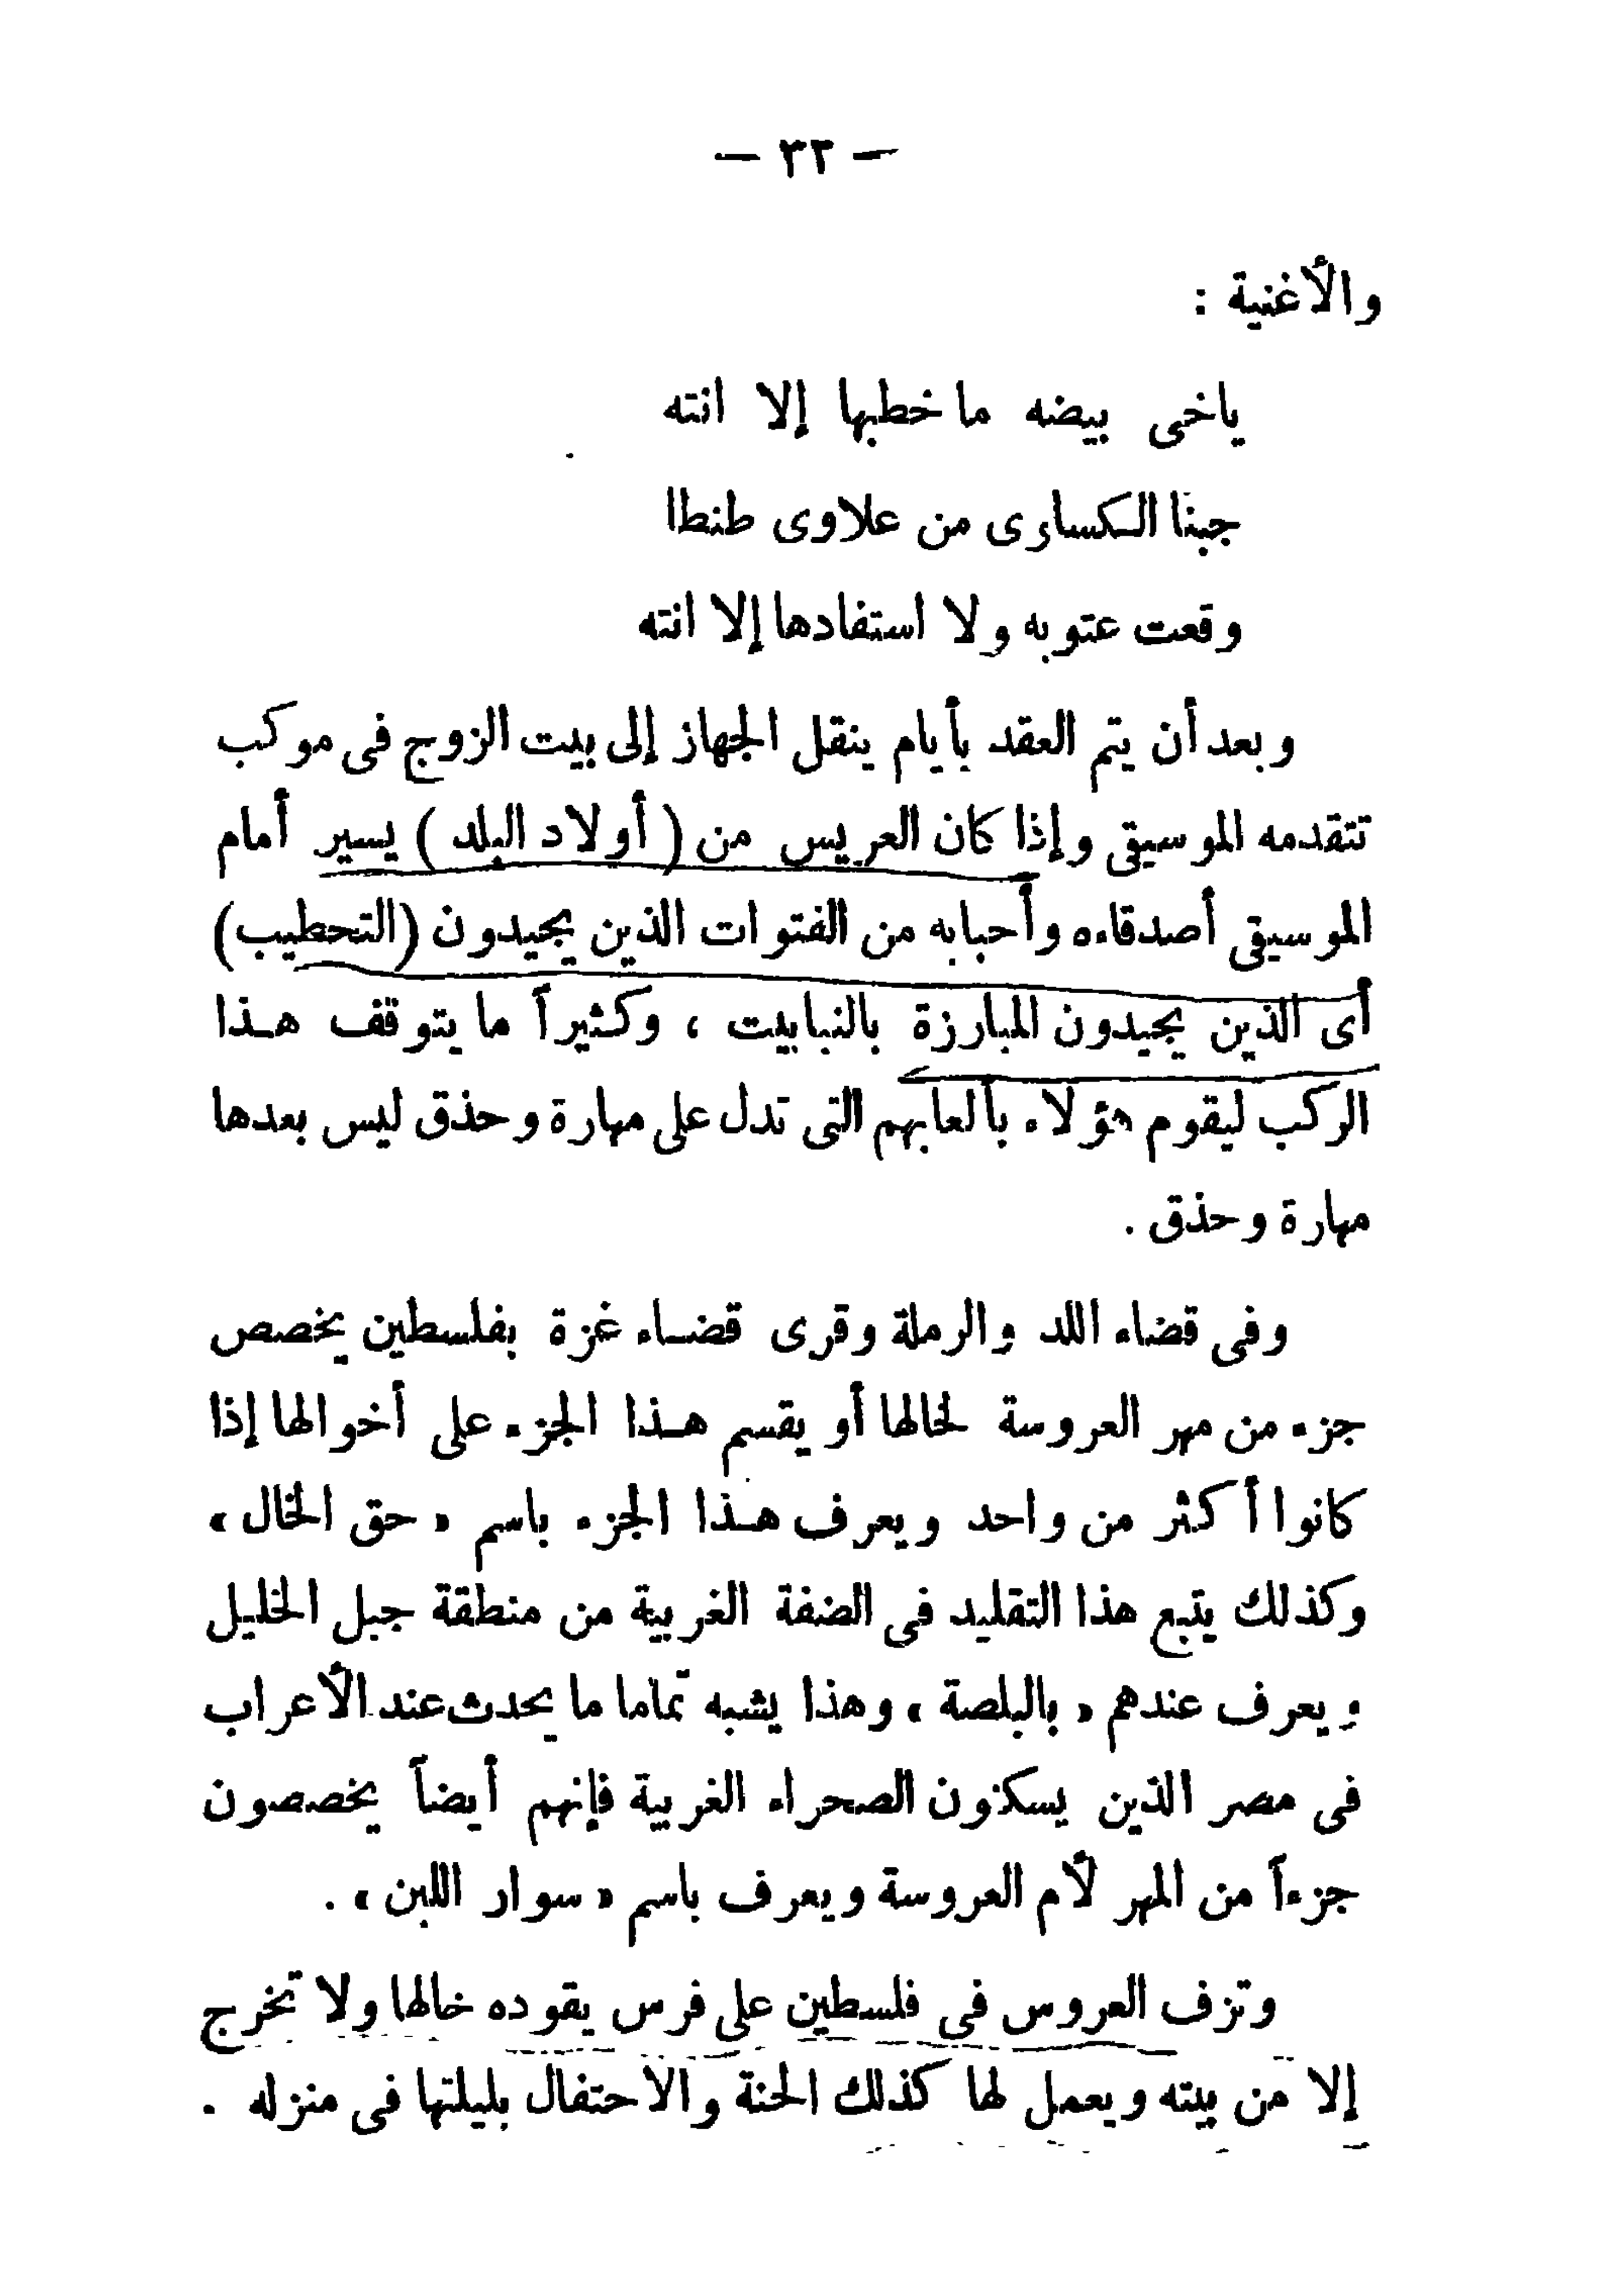 — ٣٢ —
والأغنية :
ياخى بيضه ماخطبها إلا انته
جبنا الكسارى من علاوى طنطا
وقعت عتوبه ولا استفادها إلا انته
وبعد أن يتم العقد بأيام ينقل الجهاز إلى بيت الزوج فى موكب
تتقدمه الموسيقى وإذا كان العريس من ( أولاد البلد ) يسير أمام
الموسيقى أصدقاءه وأحبابه من الفتوات الذين يجيدون (التحطيب)
أى الذين يجيدون المبارزة بالنبابيت ، وكثيراً ما يتوقف هذا
الركب ليقوم هؤلاء بألعابهم التى تدل على مهارة وحذق ليس بعدها
مهارة وحذق .
وفى قضاء اللد والرملة وقرى قضاء غزة بفلسطين يخصص
جزء من مهر العروسة لخالها أو يقسم هذا الجزء على أخوالها إذا
كانوا أكثر من واحد ويعرف هذا الجزء باسم « حق الخال »
وكذلك يتبع هذا التقليد فى الضفة الغربية من منطقة جبل الخليل
ويعرف عندهم « بالبلصة » وهذا يشبه تماما ما يحدث عند الأعراب
فى مصر الذين يسكنون الصحراء الغربية فإنهم أيضاً يخصصون
جزءاً من المهر لأم العروسة ويعرف باسم « سوار اللبن » .
وتزف العروس فى فلسطين على فرس يقوده خالها ولا تخرج
إلا من بيته ويعمل لها كذلك الحنة والاحتفال بليلتها فى منزله .